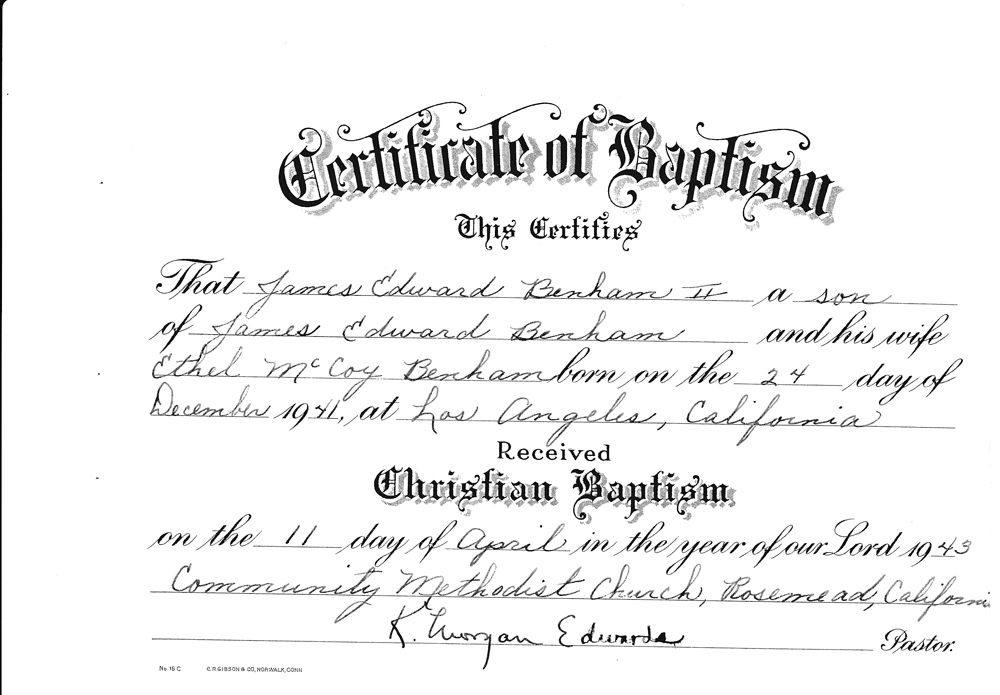 Certificate of Baptism
This Certifies
That James Edward Benham II a son
of James Edward Benham and his wife
Ethel McCoy Benham born on the 24 day of
December 1941, at Los Angeles, California
Received
Christian Baptism
on the 11 day of April in the year of our Lord 1943
Community Methodist Church, Rosemead, California
K. Morgan Edwards Pastor.
No. 15 C C.R. GIBSON & CO, NORWALK, CONN